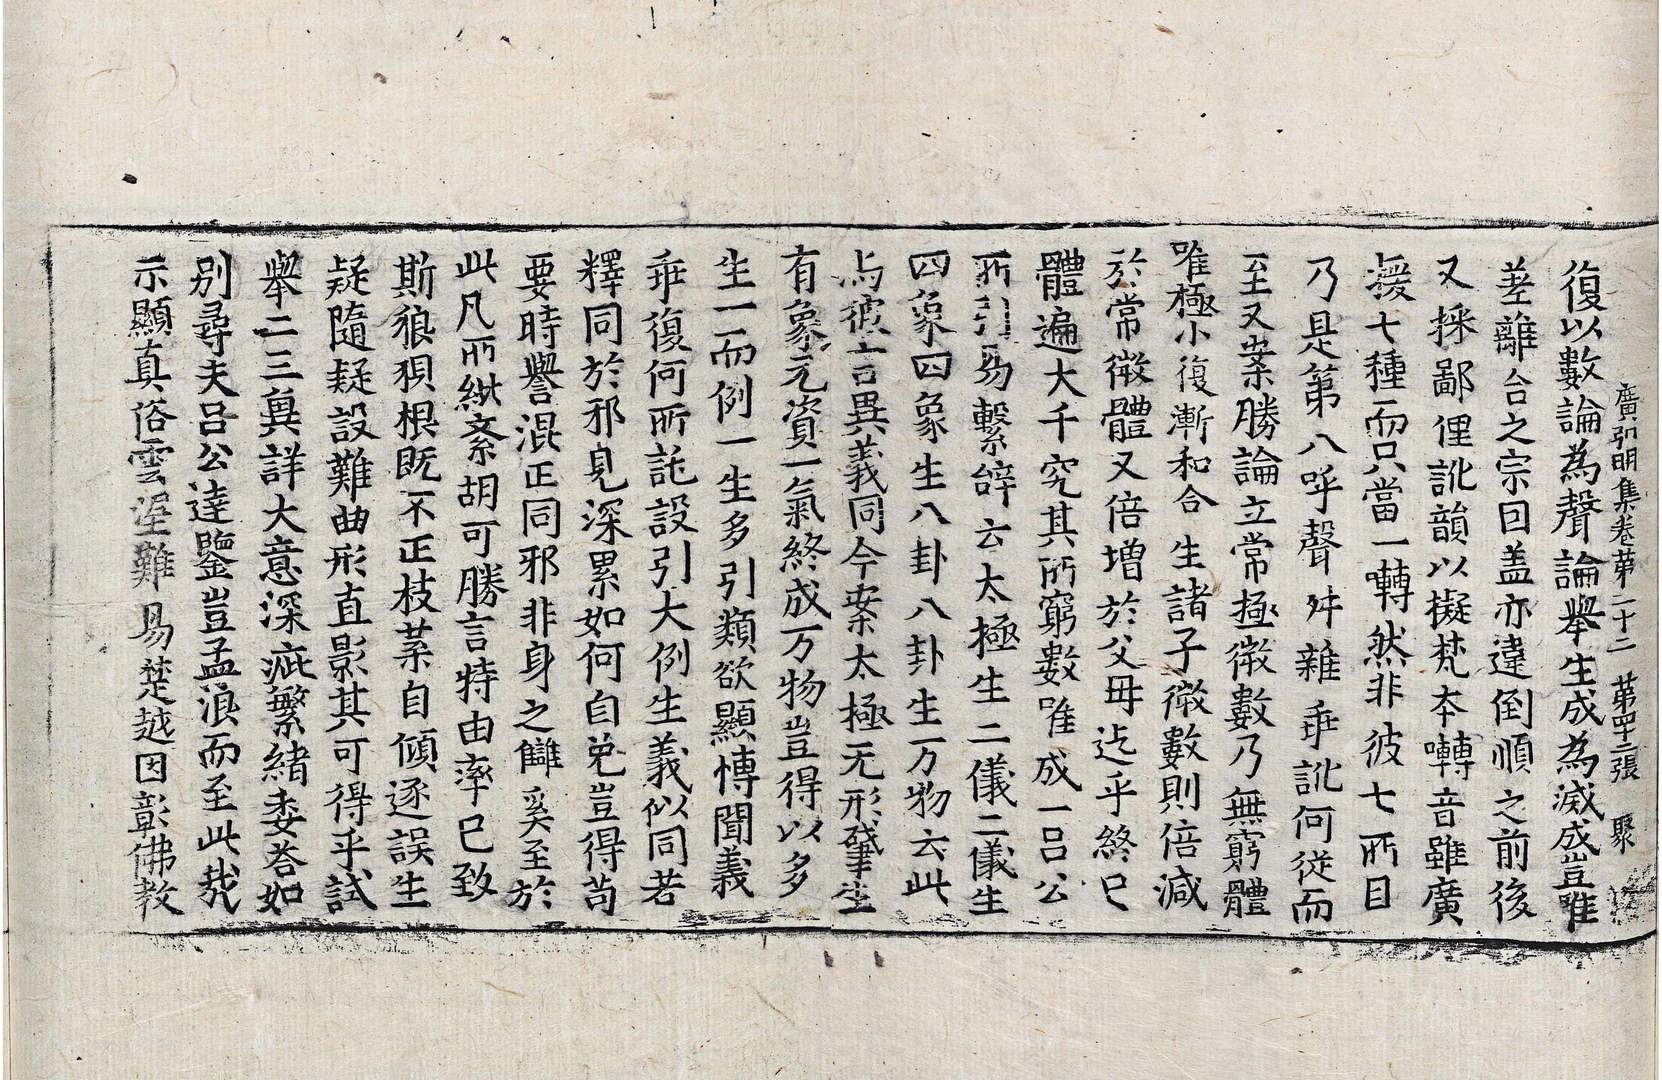 廣弘明集卷第二十二 第四十二張 聚
復以數論為聲論舉生成為滅成豈唯
差離合之宗因盖亦違倒順之前後
又採鄙俚訛韻以擬梵本囀音雖廣
援七種而只當一囀然非彼七所目
乃是第八呼聲舛雜乖訛何從而
至又案勝論立常極微數乃無窮體
唯極小復漸和合生諸子微數則倍減
於常微體又倍增於父母迄乎終已
體遍大千究其所窮數唯成一吕公
所引易繫辝云太極生二儀二儀生
四象四象生八卦八卦生万物云此
与彼言異義同今案太極无形肇生
有象元資一氣終成万物豈得以多
生一而例一生多引類欲顯慱聞義
乖復何所託設引大例生義似同若
釋同於邪見深累如何自免豈得苟
要時譽混正同邪非身之讎奚至於
此凡所紕紊胡可勝言特由率已致
斯狼狽根既不正枝葉自傾逐誤生
疑隨疑設難曲形直影其可得乎試
舉二三冀詳大意深疵繁緒委荅如
别尋夫吕公達鑒豈孟浪而至此哉
示顯真俗雲泥難易楚越因彰佛教